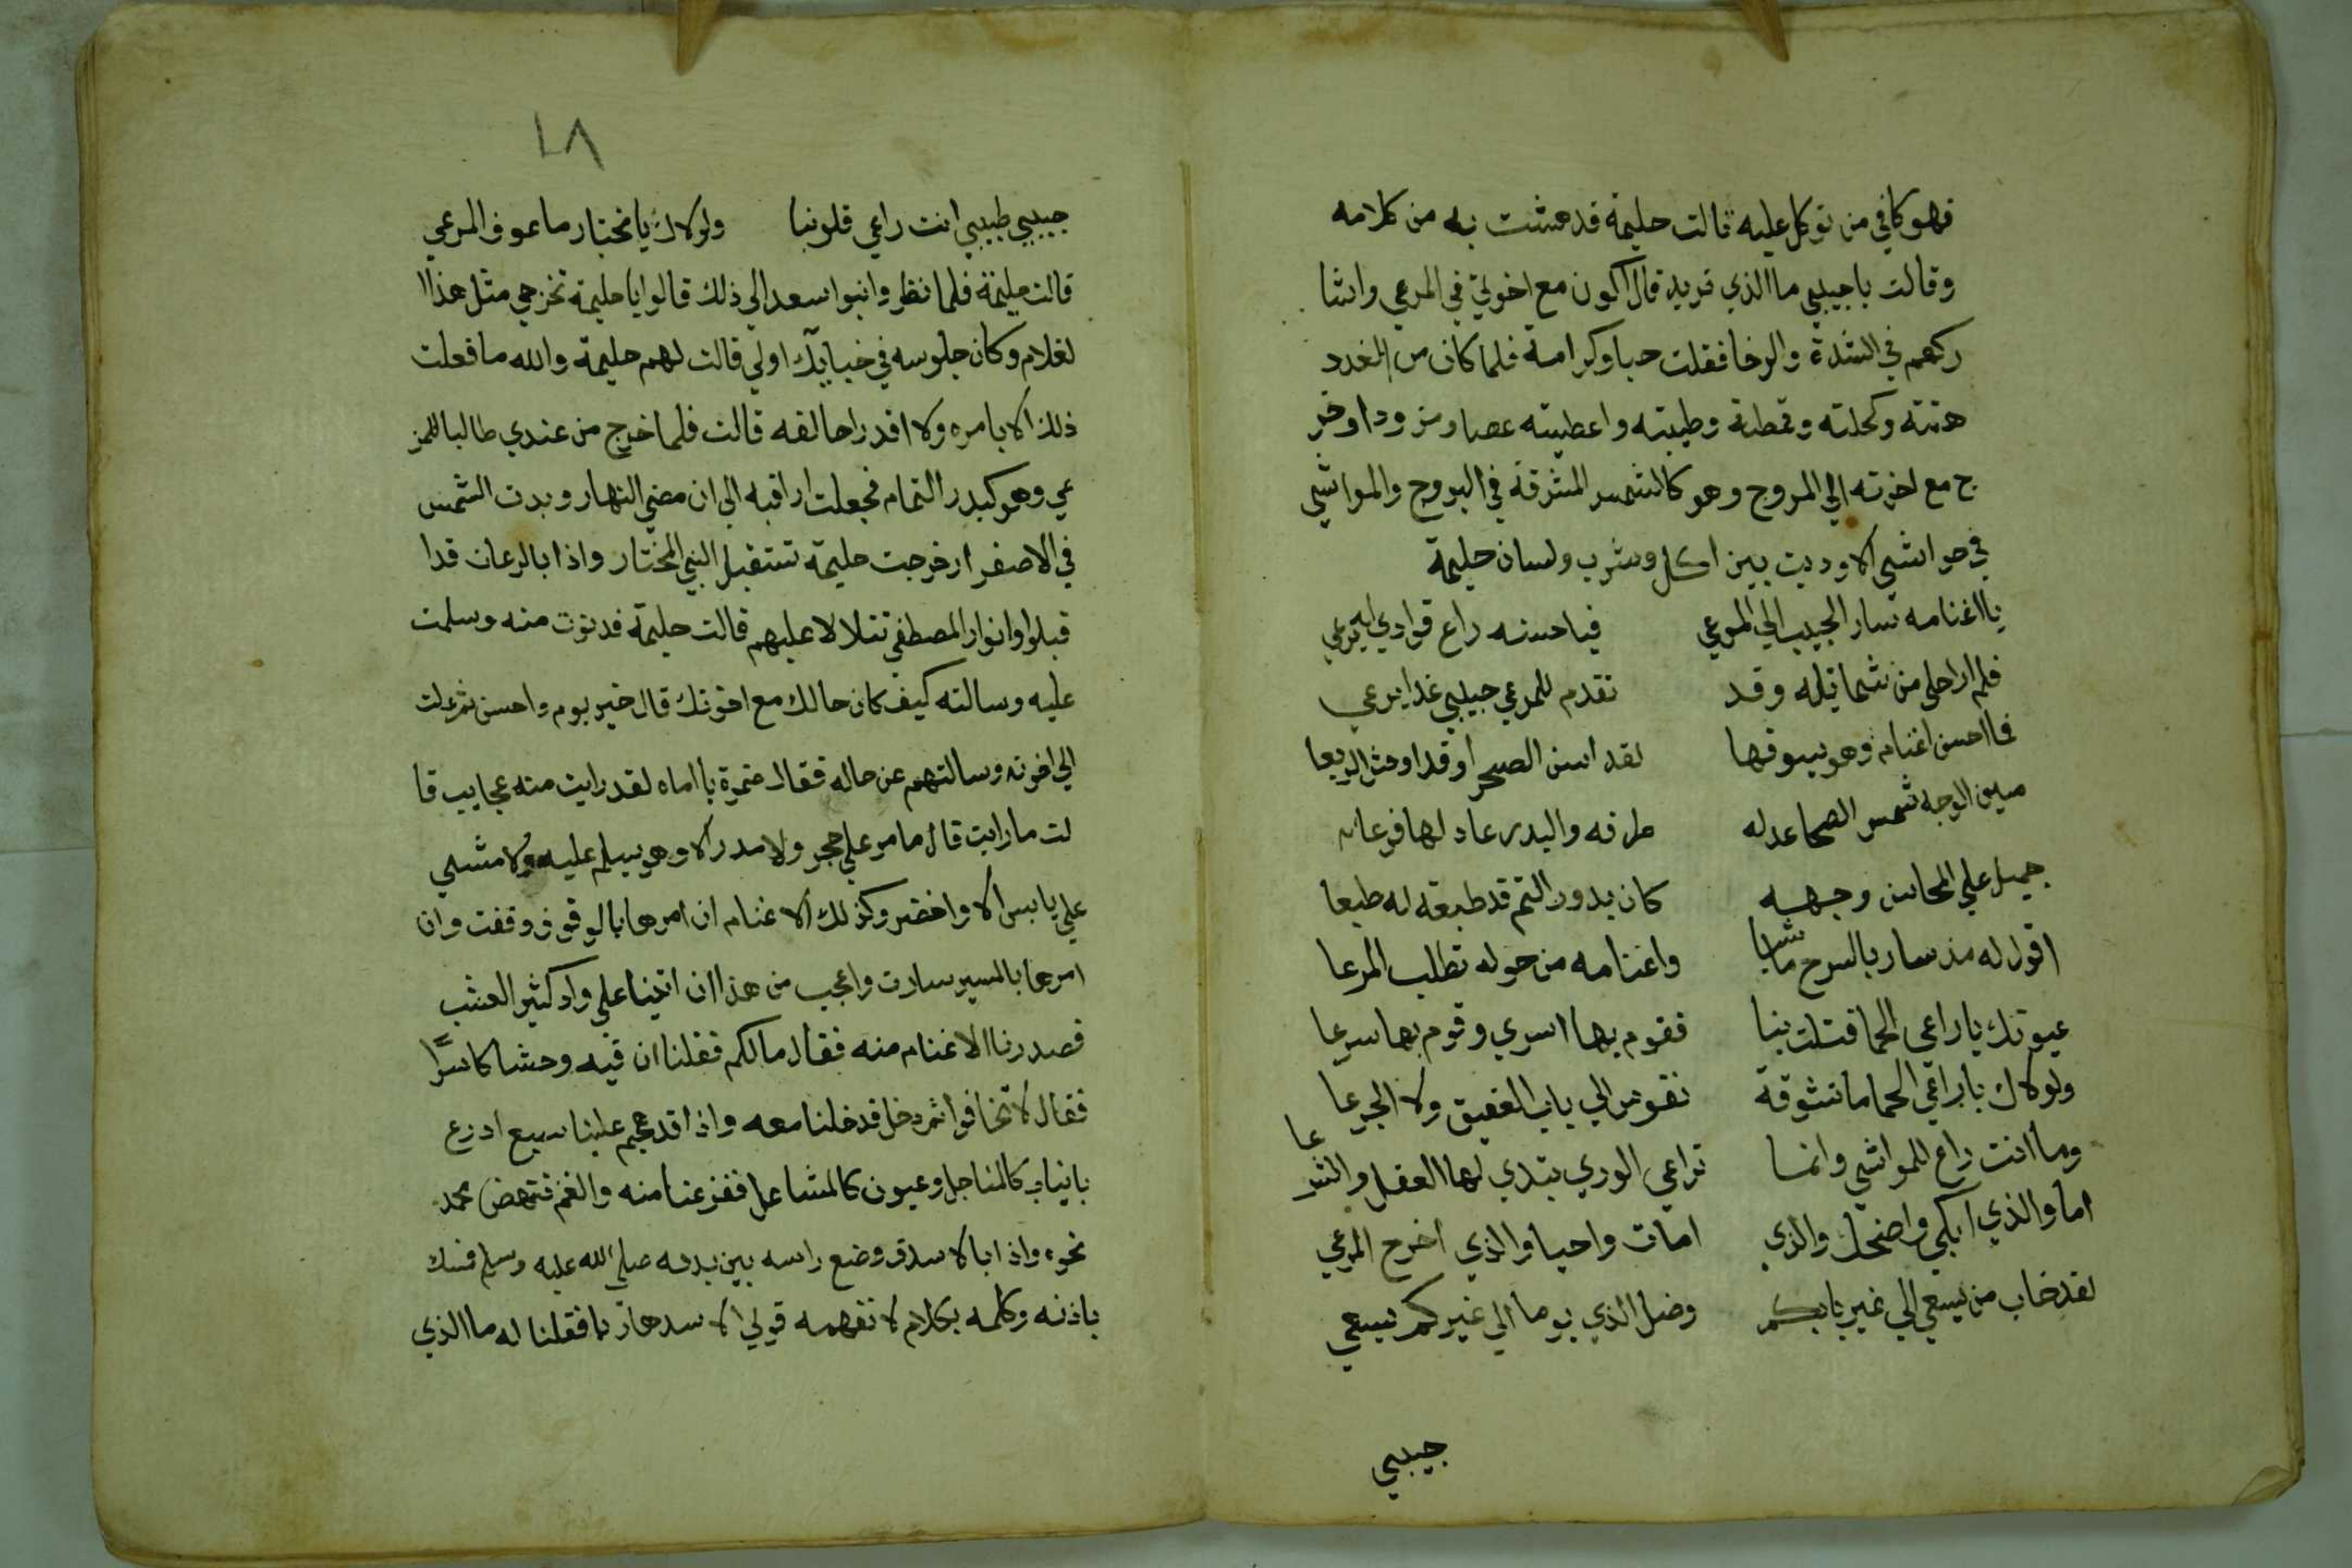 فهو كافي من توكل عليه قالت حليمة فدهشت به من كلامه
وقالت يا حبيبي ما الذي تريد قال اكون مع اخوتي في المرعي واشا
ركهم في الشدة والرخا فقلت حبا وكرامة فلما كان من الغد د
هنته وكحلته وقمطته وطيبته واعطيته عصا ومزودا وخر
ج مع اخوته الي المروج وهو كالشمس المشرقة في البروج والمواشي
في حواشي الاوديت بين اكل وشرب ولسان حليمة
يا اغنامه سار الحبيب الي المرعي فيا حسنه راع فوادي له يرعي
فلم ار احلي من شمايله وقد تقدم للمرعي حبيبي غدا يرعي
فما احسن اغنام وهو يسوقها لقد انس الصحرا وقد اوحش الربعا
الوجه شمس الضحا طرفه والبدر عاد لها فرعا
جميل علي المحاسن وجهه كان بدور التم قد طبعته له طبعا
اقول له مذ سار بالسرح ماشيا واغنامه من حوله تطلب المرعا
عيونك يا راعي الحما قتلت بنا فقوم بها اسري وقوم بها سرعا
ولولاك يا راعي الحما ما تشوقة نفوس الي بان العقيق ولا الجرعا
وما انت راع للمواشي وانما تراعي الوري تبتدي لها العقل والشرعا
اما والذي ابكي واضحك والذي امات واحيا والذي اخرج المرعي
لقد خاب من يسعي الي غير بابكم وضل الذي يوما الي غيركم يسعي
حبيبي
٢٨
حبيبي طبيبي انت راعي قلوبنا ولولاك يا مختار ما عرف المرعي
قالت حليمة فلما نظروا بنوا سعد الي ذلك قالوا يا حليمة تخرجي مثل هذا ا
لغلام وكان جلوسه في خبايك اولي قالت لهم حليمة والله ما فعلت
ذلك الا بامره ولا اقدر اخالفه قالت فلما خرج من عندي طالبا للمر
عي وهو كبدر التمام فجعلت اراقبه الي ان مضي النهار وبدت الشمس
في الاصفرار خرجت حليمة تستقبل النبي المختار واذا بالرعات قد ا
قبلوا وانوار المصطفي تتلالا عليهم قالت حليمة فدنوت منه وسلمت
عليه وسالته كيف كان حالك مع اخوتك قال خير يوم واحسن ثم ملت
الي اخوته وسالتهم عن حاله فقال ضمرة يا اماه لقد رايت منه عجايب قا
لت ما رايت قال ما مر علي حجر ولا مدر الا وهو يسلم عليه ولا مشي
علي يابس الا واخضر وكذلك الاغنام ان امرها بالوقوف وقفت وان
امرها بالمسير سارت واعجب من هذا ان اتينا علي واد كثير العشب
فصدرنا الاغنام منه فقال مالكم فقلنا ان فيه وحشا كاسرا
فقال لا تخافوا ثم دخل فدخلنا معه واذا قد هجم علينا سبع ادرع
بانياب كالمناجل وعيون كالمشاعل ففزعنا منه والغنم فنهض محمد
نحوه واذا بالاسد قد وضع راسه بين يديه صلي الله عليه وسلم فمسك
باذنه وكلمه بكلام لا نفهمه فولي الاسد هاربا فقلنا له ما الذي